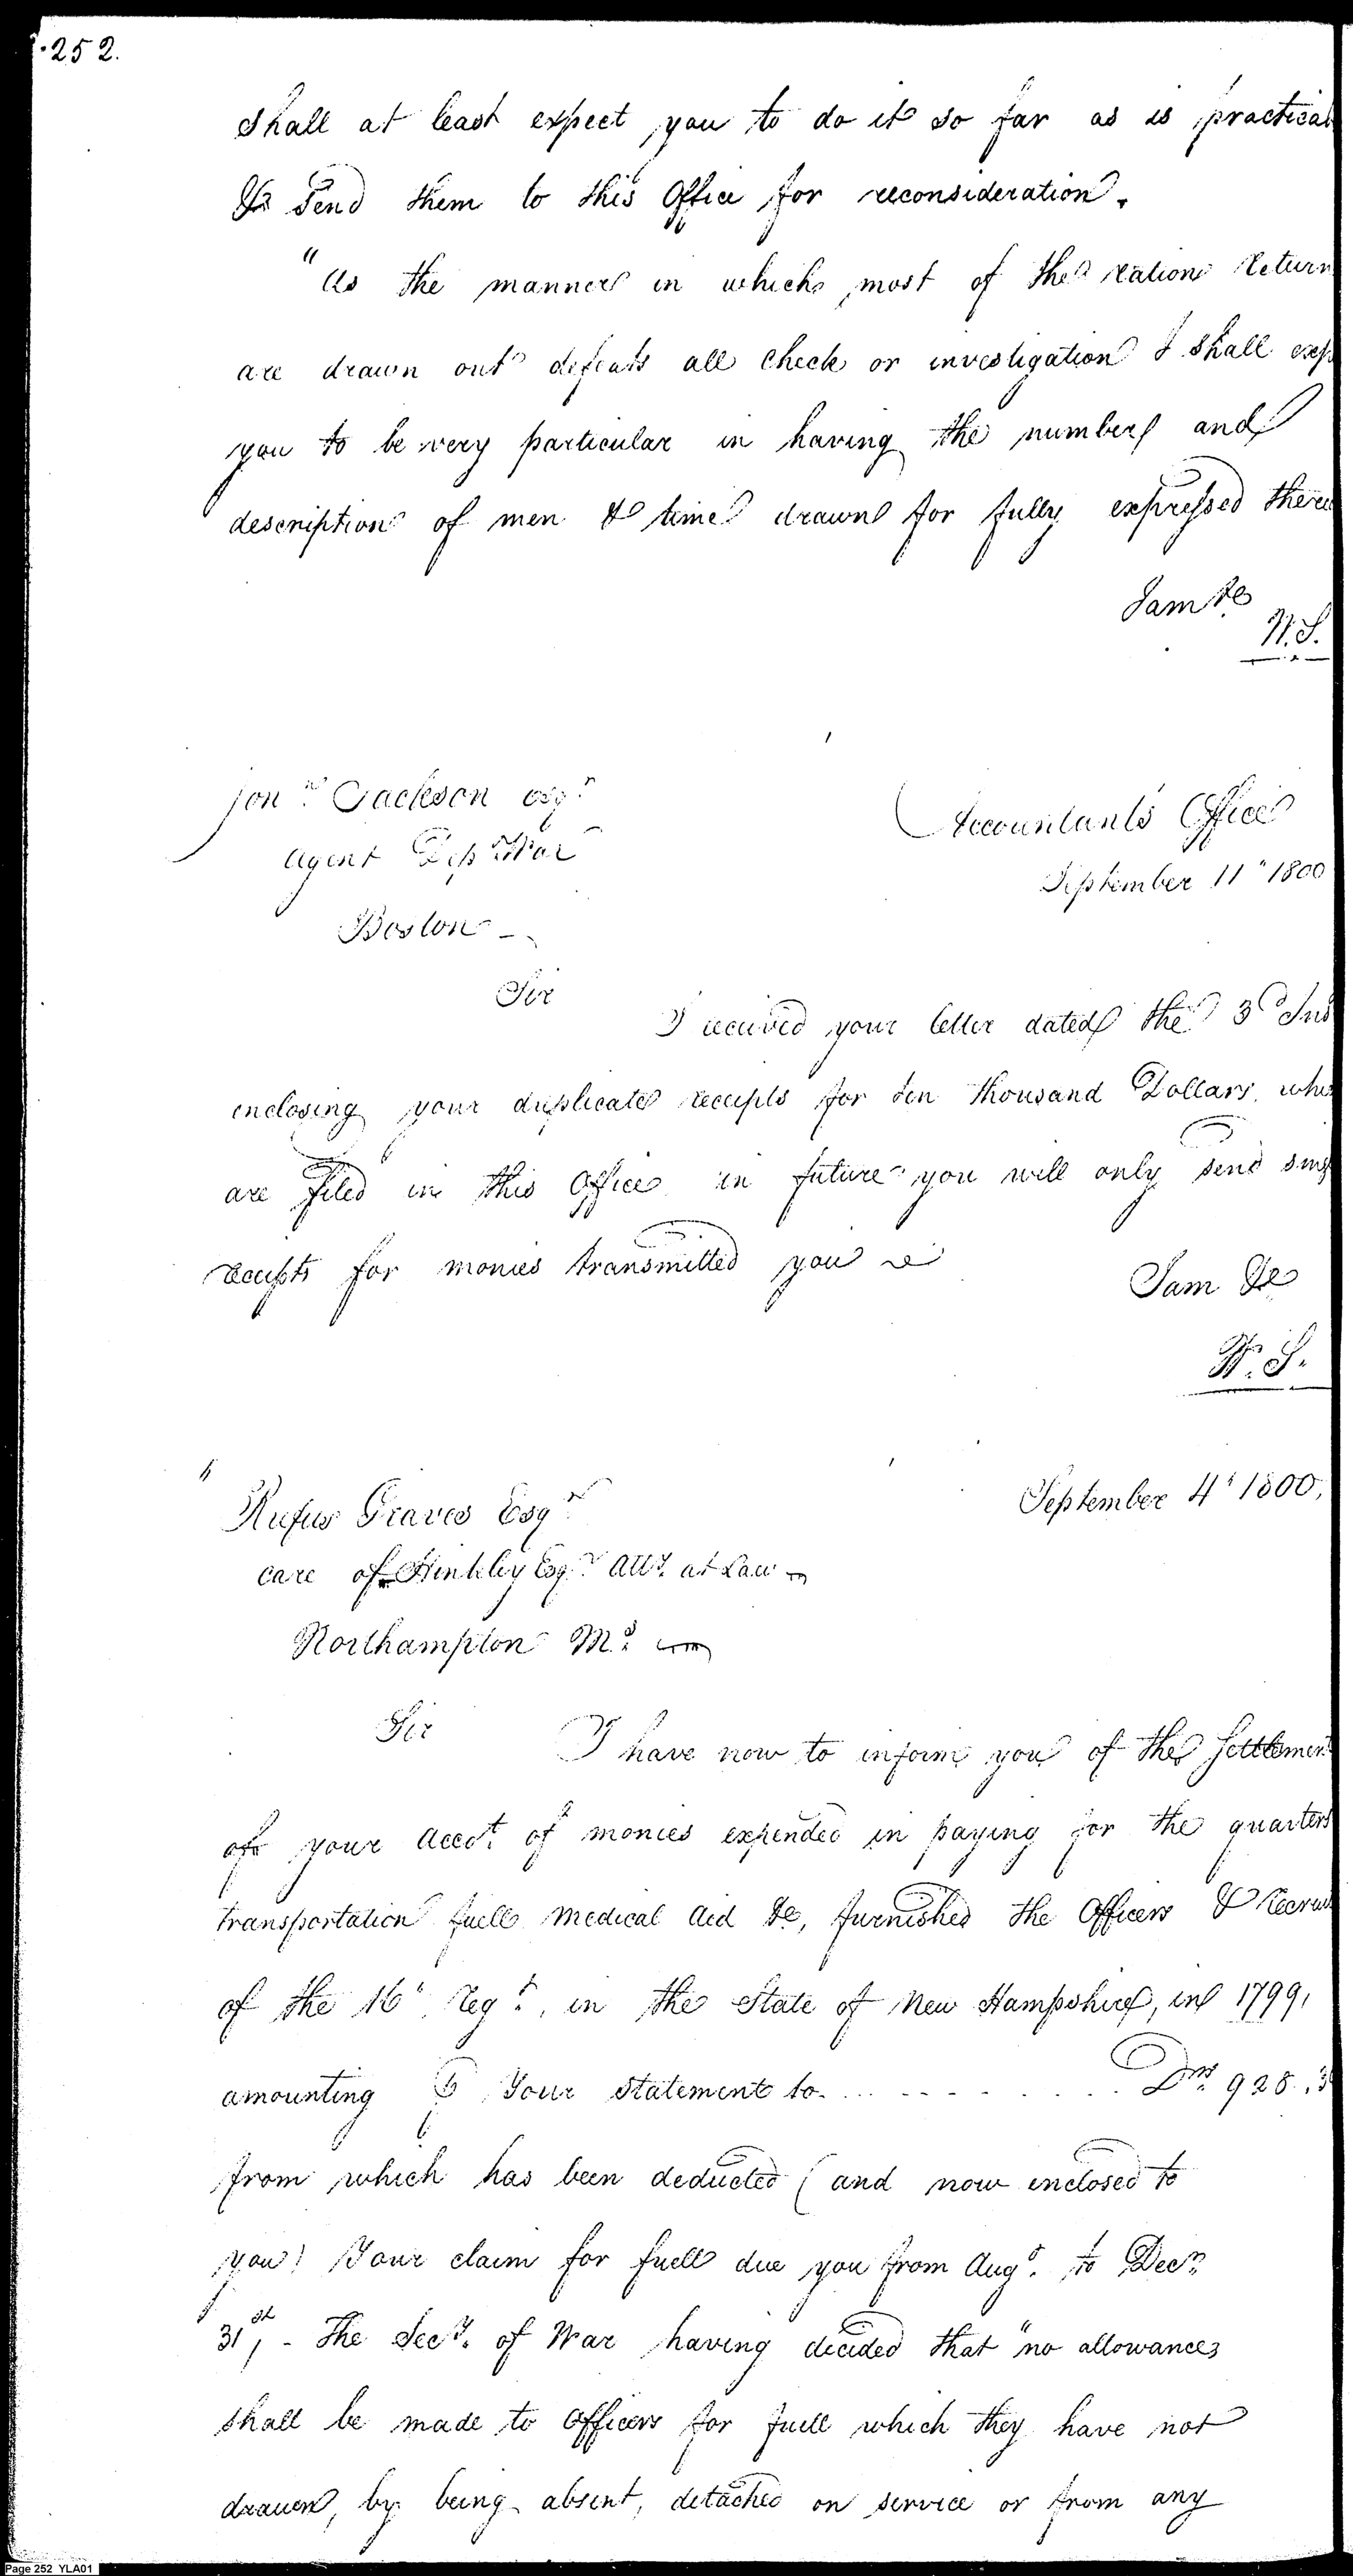 252.
shall at least expect you to do it so far as is practical
& Send them to this Office for reconsideration.
"As the manner in which most of the ration Return
are drawn out defeats all check or investigation I shall exp
you to be very particular in having the number and
description of men & time drawn for fully expressed there
I am &c
W. S.
Jonn. Jackson esqr.
Agent Dep War
Boston
Accountants Office
September 11" 1800
Sir
I received your letter dated the 3d Ins
enclosing your duplicate receipts for ten thousand Dollars. whi
are filed in this Office in future you will only send sing
receipts for monies transmitted you
I am &c
W. S.
" Rufus Graves Esqr
September 4' 1800,
care of Hinkley Esqr. Atty. at Law
Northampton Ms.
Sir
I have now to inform you of the Settlemen
of your Accot. of monies expended in paying for the quarters
transportation fuell Medical Aid &c, furnished the Officers & Recruit
of the 16' Regt. in the State of New Hampshire, in 1799,
amounting ⅌ Your Statement to. . . . . . . . . . . Drs. 928.3
from which has been deducted (and now enclosed to
you) Your claim for fuell due you from Augt. to Decr.
31st, - The Secy. of War having decided that "no allowances
shall be made to Officers for fuell which they have not
drawn, by being absent, detached on service or from any
Page 252 YLA01